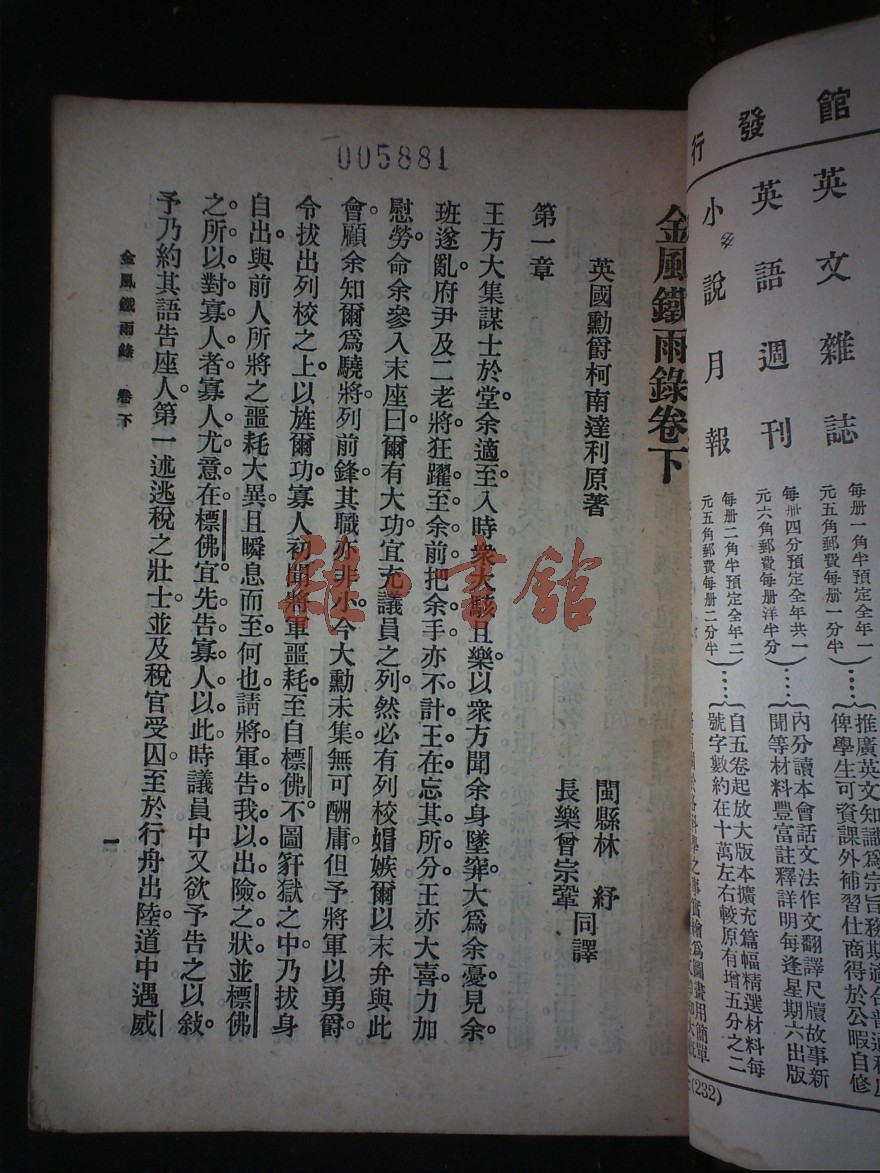 館發行
英文雜誌
每冊一角半預定全年一
元五角郵費每冊一分半
推廣英文知識爲宗旨務期適合普通程度
俾學生可資課外補習仕商得於公暇自修
英語週刊
每冊四分預定全年共一
元六角郵費每冊洋半分
內分讀本會話文法作文翻譯尺牘故事新
聞等材料豐富註釋詳明每逢星期六出版
小說月報
每冊二角半預定全年二
元五角郵費每冊二分半
自五卷起放大版本擴充篇幅精選材料每
號字數約在十萬左右較原有增五分之二
(232)
005881
金風鐵雨錄卷下
英國勳爵柯南達利原著
閩縣林紓
長樂曾宗鞏
同譯
第一章
王方大集謀士於堂。余適至。入時衆大駭且樂。以衆方聞余身墜穽。大爲余憂。見余。
班遂亂。府尹及二老將狂躍至余前。把余手。亦不計王在。忘其所分。王亦大喜。力加
慰勞。命余參入末座。曰爾有大功。宜充議員之列。然必有列校媢嫉爾以末弁與此
會。顧余知爾爲驍將。列前鋒。其職亦非小。今大勳未集。無可酬庸。但予將軍以勇爵。
令拔出列校之上。以旌爾功。寡人初聞將軍噩耗。至自標佛。不圖犴獄之中。乃拔身
自出。與前人所將之噩耗大異。且瞬息而至何也。請將軍告我以出險之狀。並標佛
之所以對寡人者。寡人尤意在標佛。宜先告寡人以此。時議員中又欲予告之以敍。
予乃約其語告座人。第一述逃稅之壯士。並及稅官受囚。至於行舟出陸。道中遇威
金風鐵雨錄 卷下
一
雜書館